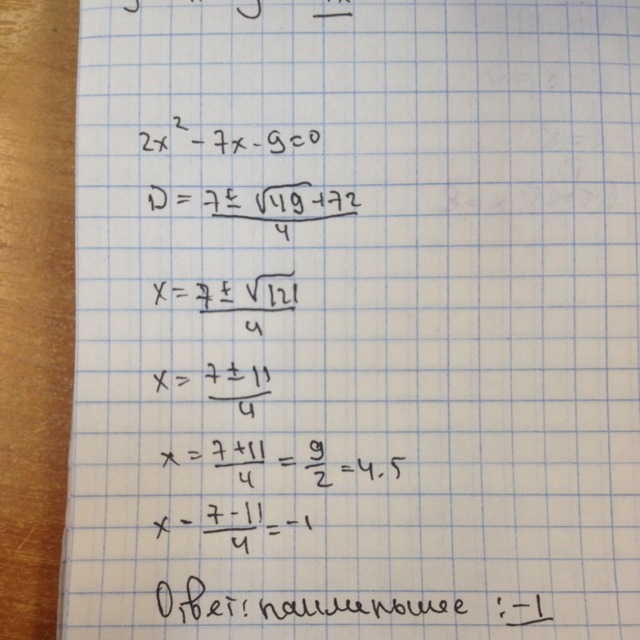 2x² - 7x - 9 = 0
D = 7 ± √49 + 72 / 4
x = 7 ± √121 / 4
x = 7 ± 11 / 4
x = 7 + 11 / 4 = 9 / 2 = 4.5
x - 7 - 11 / 4 = -1
Ответ: наименьшее : -1